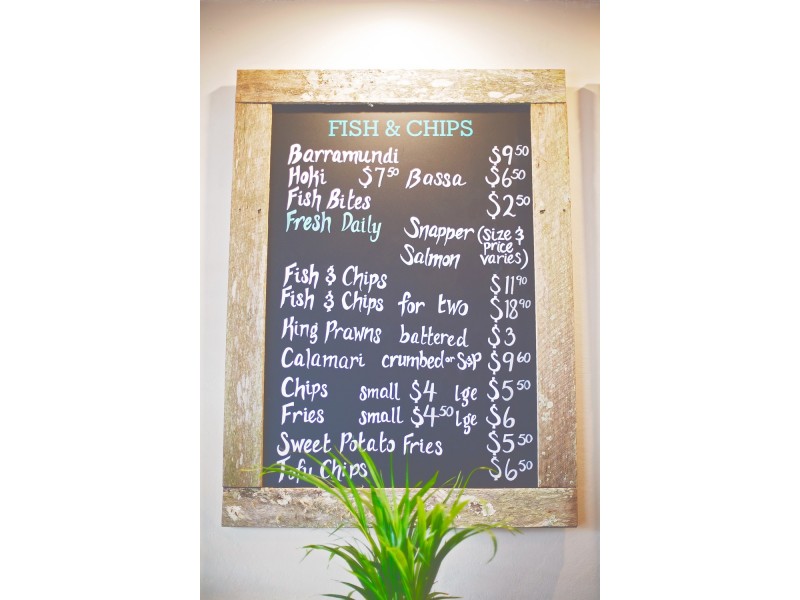 FISH & CHIPS
Barramundi $9.50
Hoki $7.50 Bassa $6.50
Fish Bites $2.50
Fresh Daily Snapper (size &
price
Salmon varies)
Fish & Chips $11.90
Fish & Chips for two $18.90
King Prawns battered $3
Calamari crumbed or S&P $9.60
Chips small $4 lge $5.50
Fries small $4.50 lge $6
Sweet Potato Fries $5.50
Tofu Chips $6.50